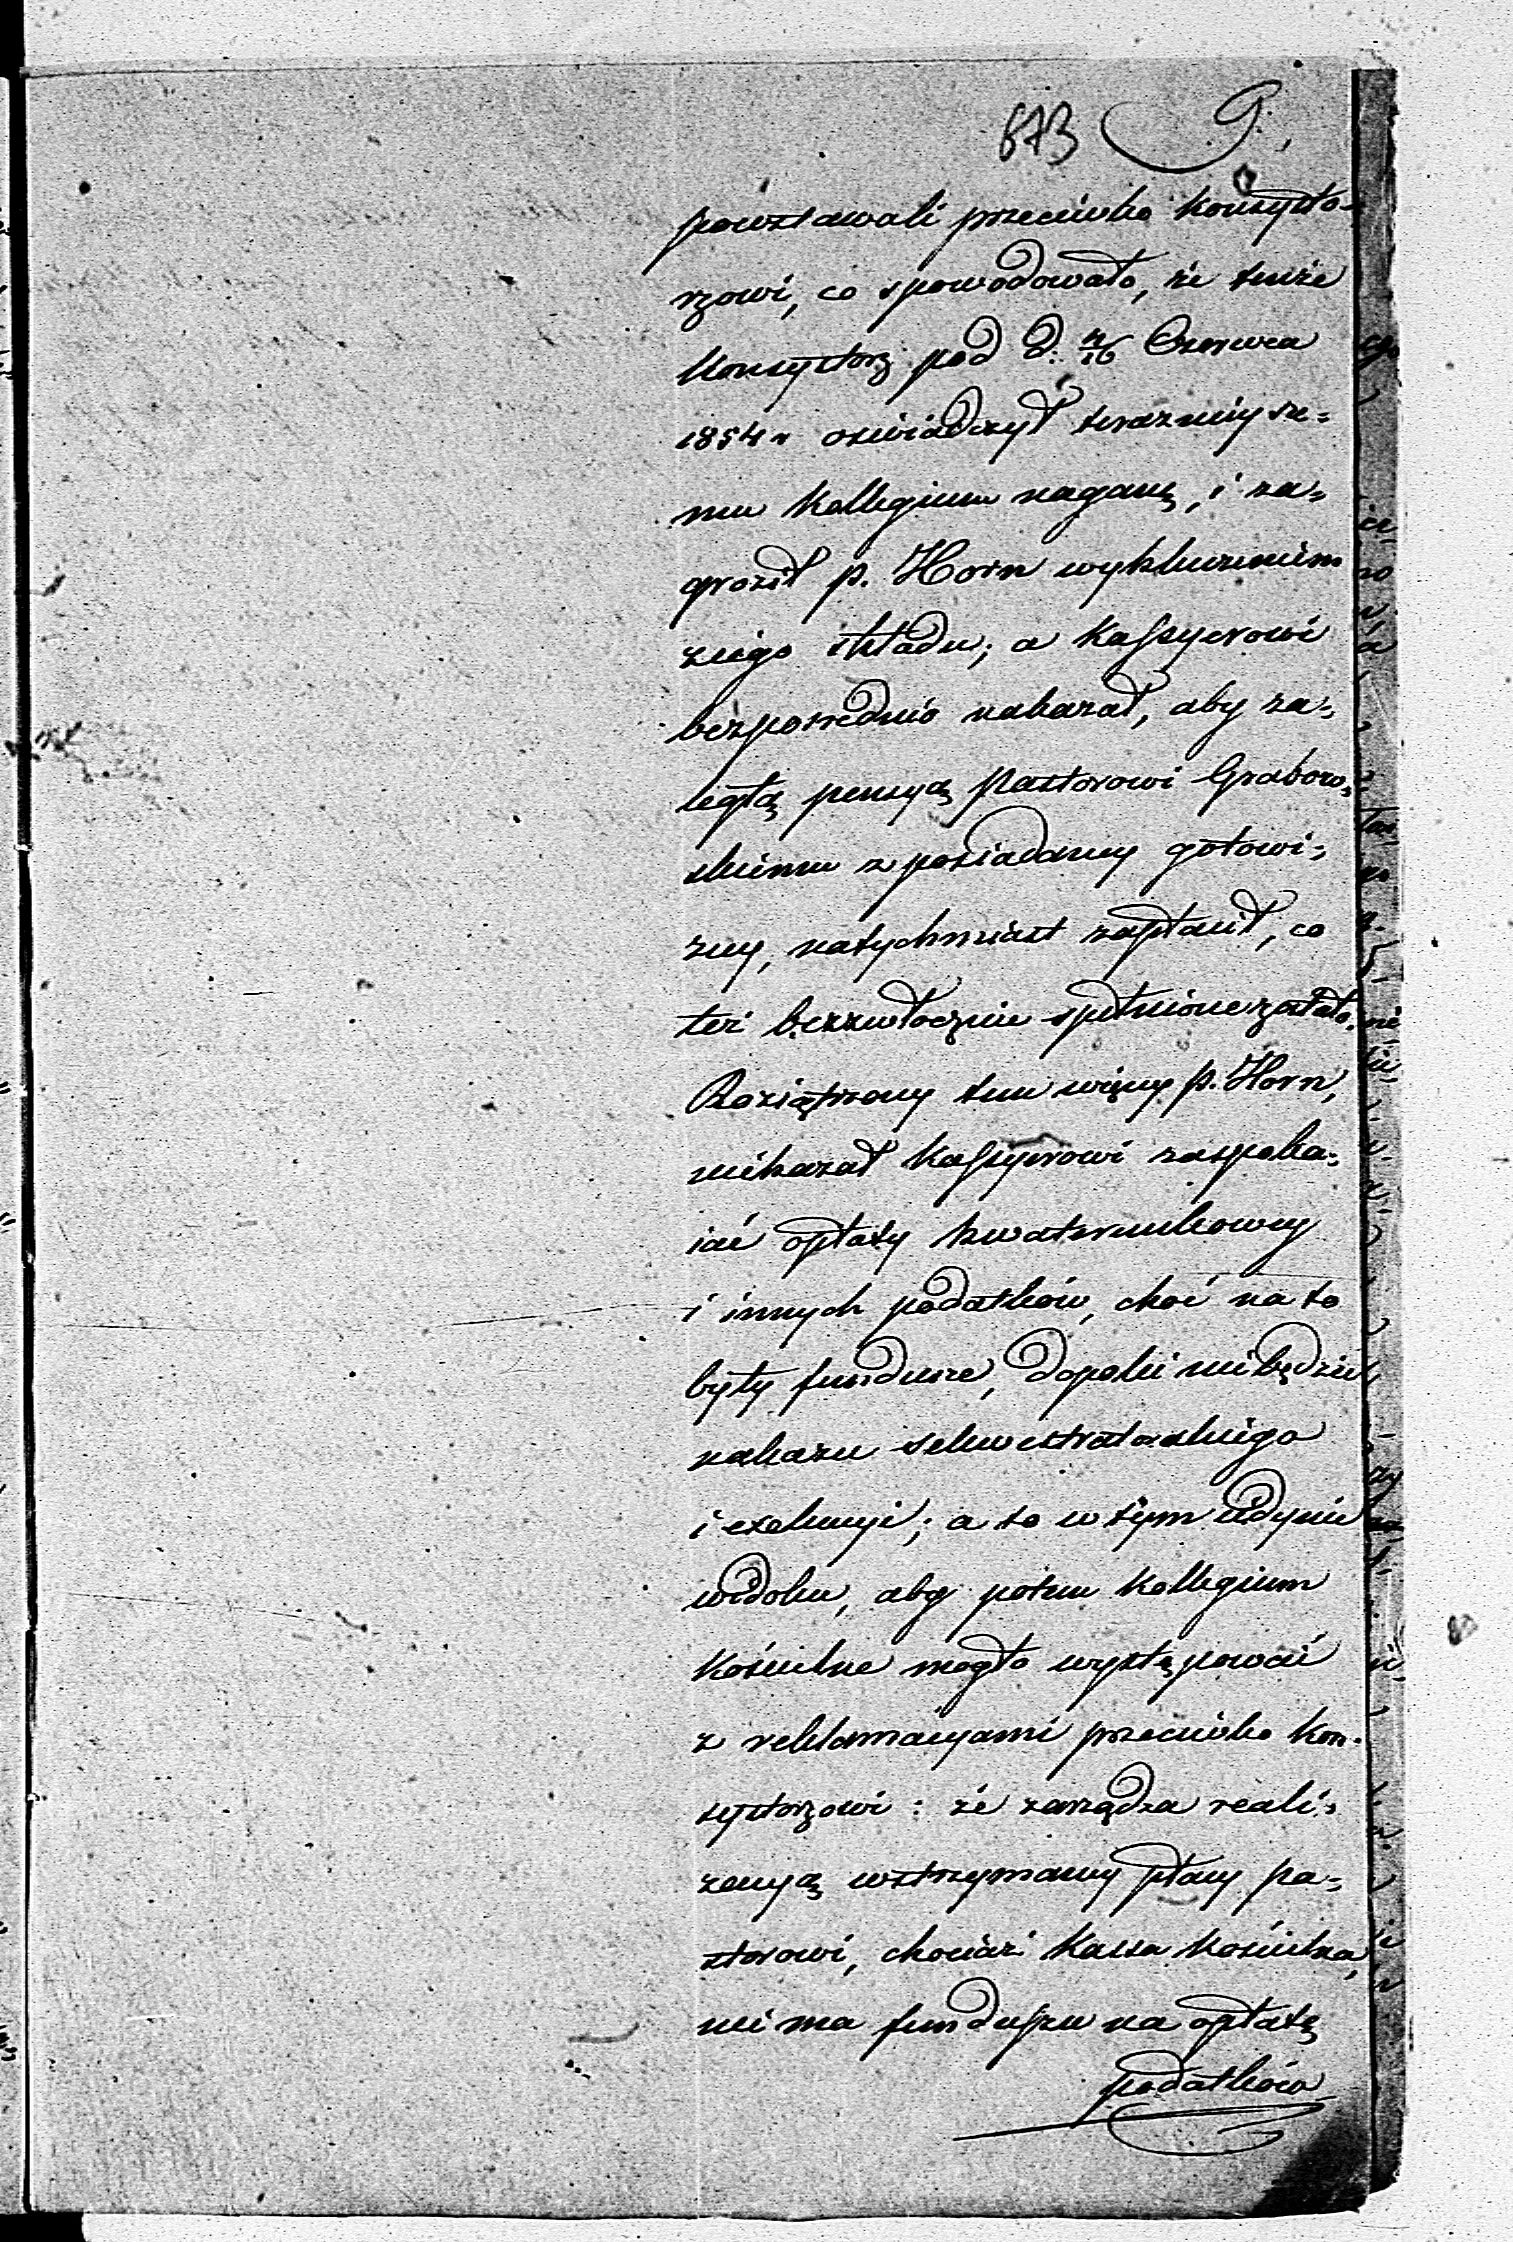 673 9.
powstawali przeciwko Konsysto-
rzowi, co spowodowało, że tenże
Konsystorz pod d. 4/16 Czerwca
1854 r oświadczył teraznieysze-
mu Kollegium naganę, i za-
groził p. Horn wykluczeniem
zniego składu; a Kassyerowi
bezpośrednio nakazał, aby za-
ległą pensyą Pastorowi Grabow-
skiemu z posiadaney gotowi-
zny, natychmiast zapłacił, co
też bezzwłocznie spełnione zostało.
Roziątrzony tem więcy p. Horn,
niekazał Kassyerowi zaspoka-
iać opłaty kwaterunkowey
i innych podatków, choć na to
były fundusze, dopoki niebędzie
nakazu sekwestratorskiego
i exekucyi; a to w tym iedynie
widoku, aby potem Kollegium
Kościelne mogło występować
z reklamacyami przeciwko Kon-
systorzowi: że zarządza reali-
zacyą wstrzymaney płacy pa-
storowi, chociaż Kassa Kościelna,
nie ma funduszu na opłatę
podatków